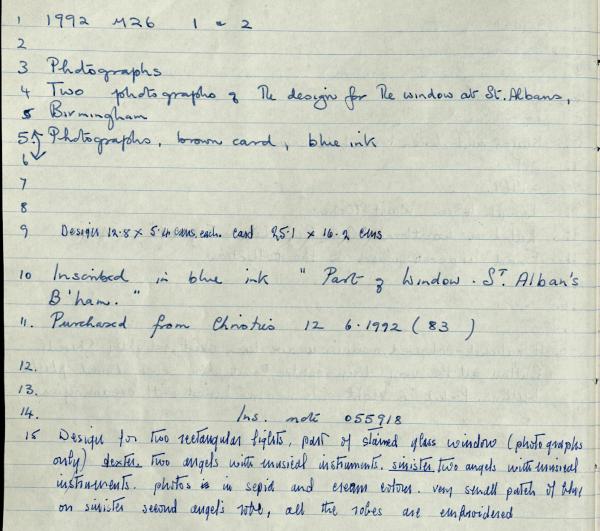 1 1992 M26 1 & 2
2
3 Photographs
4 Two photographs of the design for the window at St. Albans,
5 Birmingham
5 Photographs, brown card, blue ink
6
7
8
9 Design 12.8 x 5.4 cms. each. card 25.1 x 16.2 cms
10 Inscribed in blue ink " Part of Window. St Alban's
B'ham. "
11. Purchased from Christies 12 6.1992 (83)
12.
13.
14. Ins. note 055918
15 Design for two rectangular lights, part of stained glass window (photographs
only) dexter, two angels with musical instruments. sinister, two angels with musical
instruments. photos is in sepia and cream colour. very small patch of blue
on sinister second angels robe, all the robes are embroidered